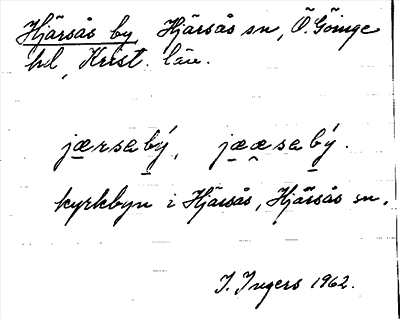 Hjärsås by, Hjärsås sn, Ö. Göinge
hd, Krist. län.
jærsabý, jææsabý.
kyrkbyn i Hjärsås, Hjärsås sn.
I. Ingers 1962.